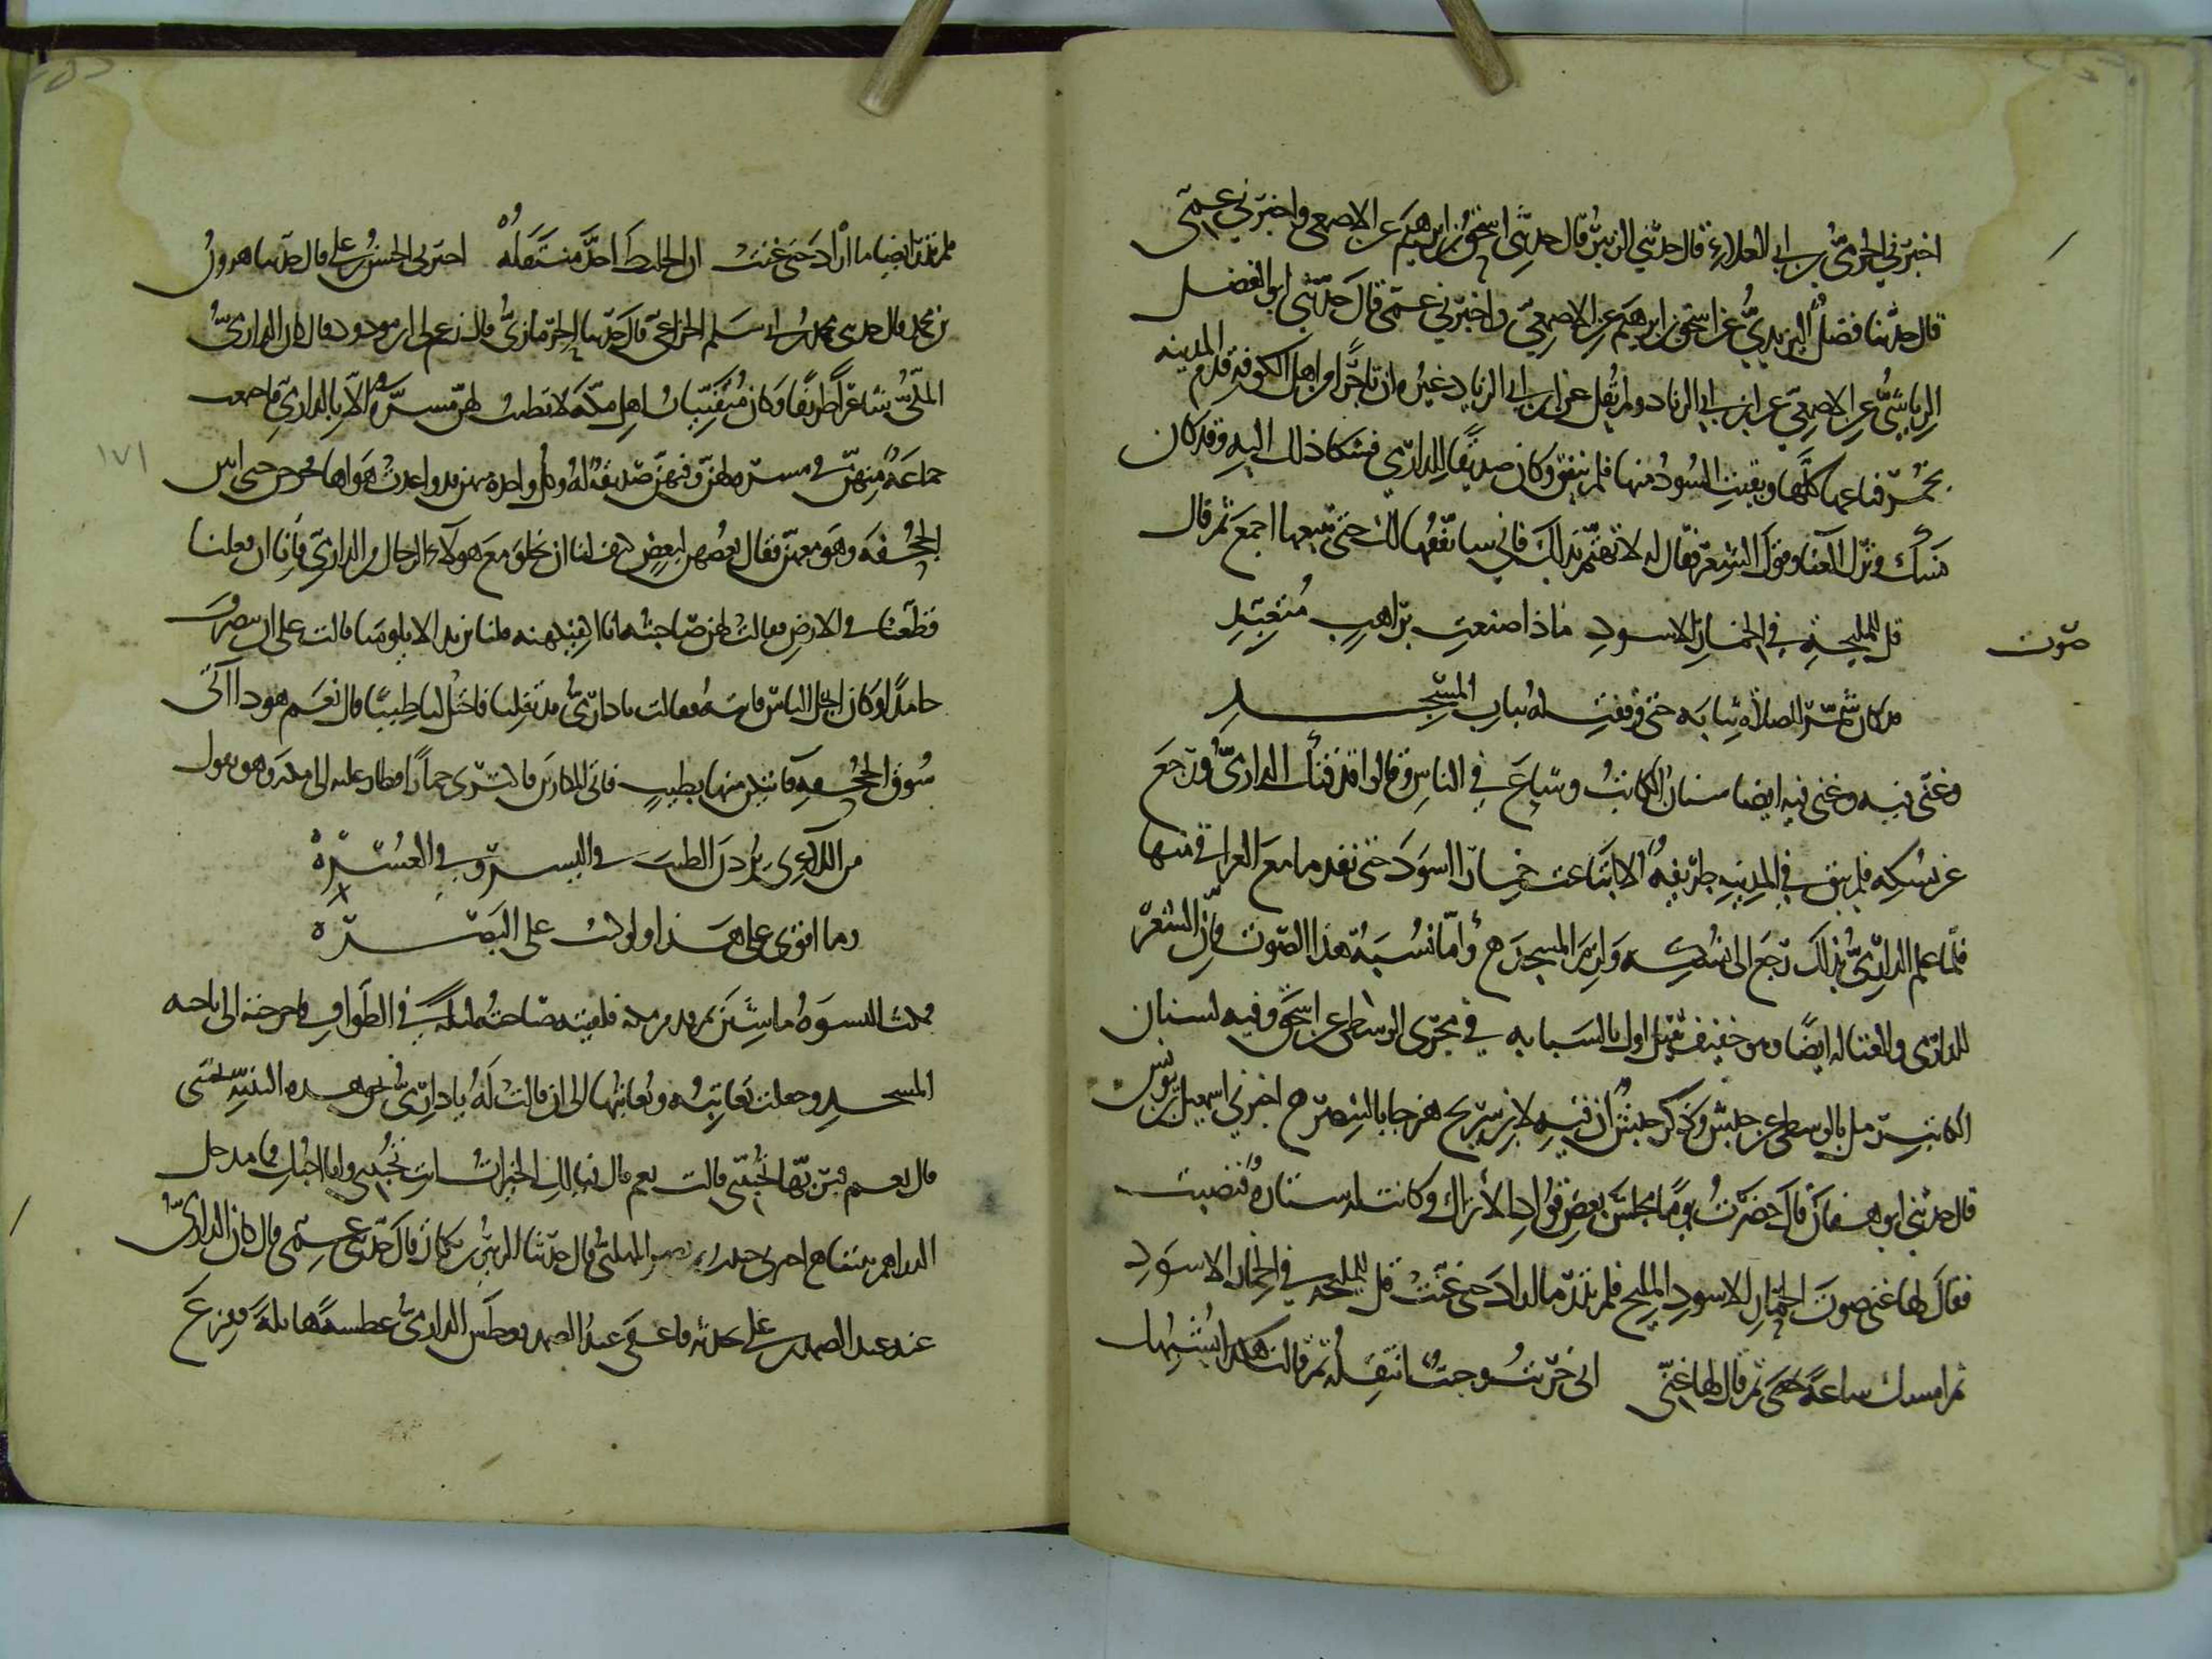 اخبرني الحرمي بن ابي العلاء قال حدثني الزبير قال حدثني اسحق بن ابرهيم عن الاصمعي واخبرني عمي
قال حدثنا فضل اليزيدي عن اسحق بن ابرهيم عن الاصمعي واخبرني عمي قال حدثني ابو الفضل
الرياشي عن الاصمعي عن ابن ابي الزناد ولم يقل عن ابن ابي الزناد غيره ان تاجرا من اهل الكوفة قدم المدينه
بخمر فباعها كلها وبقيت السود منها فلم تنفق وكان صديقا للدارمي فشكا ذلك اليه وقد كان
نسك وترك الغنا وقول الشعر فقال له لا تهتم بذلك فاني سانفقها لك حتى تبيعها اجمع ثم قال
صوت
قل للمليحة في الخمار الاسود ماذا صنعت براهب متعبد
قد كان شمر للصلاة ثيابه حتى وقفت له بباب المسجد
وغنى فيه وغنى فيه ايضا سنان الكاتب وشاع في الناس وقالوا قد فتك الدارمي ورجع
عن نسكه فلم يبق في المدينه ظريفة الا ابتاعت خمارا اسود حتى نفد ما مع العراقي منها
فلما علم الدارمي بذلك رجع الى نسكه ولزم المسجد ح وأما نسبة هذا الصوت فان الشعر
للدارمي والغنا له ايضا وهو خفيف ثقيل اول بالسبابه في مجرى الوسطى عن اسحق وفيه لسنان
الكاتب رمل بالوسطى عن حبش وذكر حبش ان فيه لابن سريج هزجا بالبنصر ح اخبرني اسمعيل بن يونس
قال حدثني ابو هفان قال حضرت يوما مجلس بعض قواد الأتراك وكانت له ستارة فنصبت
فقال لها غني صوت الخمار الاسود المليح فلم ندر ما اراد حتى غنت قل للمليحه في الخمار الاسود
ثم امسك ساعة ثم قال لها غني اني خريت وجئت انتقله ثم قالت هذا يشبهك
فلم ندر ايضا ما أراد حتى غنت ان الخليط اجد منتقله اخبرني الحسن بن علي قال حدثنا هرون
بن محمد قال حدثني محمد بن ابي سلم الخزاعي قال حدثنا الحرمازي قال زعم لي ابن مودود قال كان الدارمي
المكي شاعرا ظريفا وكان متفتيات اهل مكة لا يطيب لهن متنزه الا بالدارمي فاجتمعت
جماعة منهن في متنزه لهن وفيهن صديقة له وكل واحدة منهن قد واعدت هواها فخرجن حتى اتين
الجحفه وهو معهن فقال بعضهن لبعض كيف لنا ان نخلو مع هولاء الرجال من الدارمي فانا ان فعلنا
قطعنا في الارض فقالت لهن صاحبته انا اكفيكنه قلنا نريد الا يلومنا قالت علي ان ينصرف
حامدا وكان ابخل الناس فاتته فقالت يا دارمي قد تفلنا فاجتل لنا طيبا قال نعم هوذا آتي
سوق الجحفه فاتيكن منها بطيب فاتى المكارين فاكترى حمارا فطار عليه الى مكة وهو يقول
من اللائي يردن الطيب في اليسر وفي العسره
وما اقوى على هذا ولو كنت على البصره
فمكث النسوة ما شئن ثم قدم من مكة فلقيته صاحبته ليلة في الطواف فاخرجته الى ناحيه
المسجد وجعلت تعاتبه ويعاتبها الى ان قالت له يا دارمي بحق هذه البنيه تحبني
قال نعم فبربها اتحبيني قالت نعم قال فيا لك الخيرات انت تحبيني وانا احبك فما مدخل
الدراهم بيننا ح اخبرني حبيب بن نصر المهلبي قال حدثنا الزبير بن بكار قال حدثني عمي قال كان الدارمي
عند عبد الصمد بن علي يحدثه فاغفى عبد الصمد فعطس الدارمي عطسة هائلة ففزع
١٧١